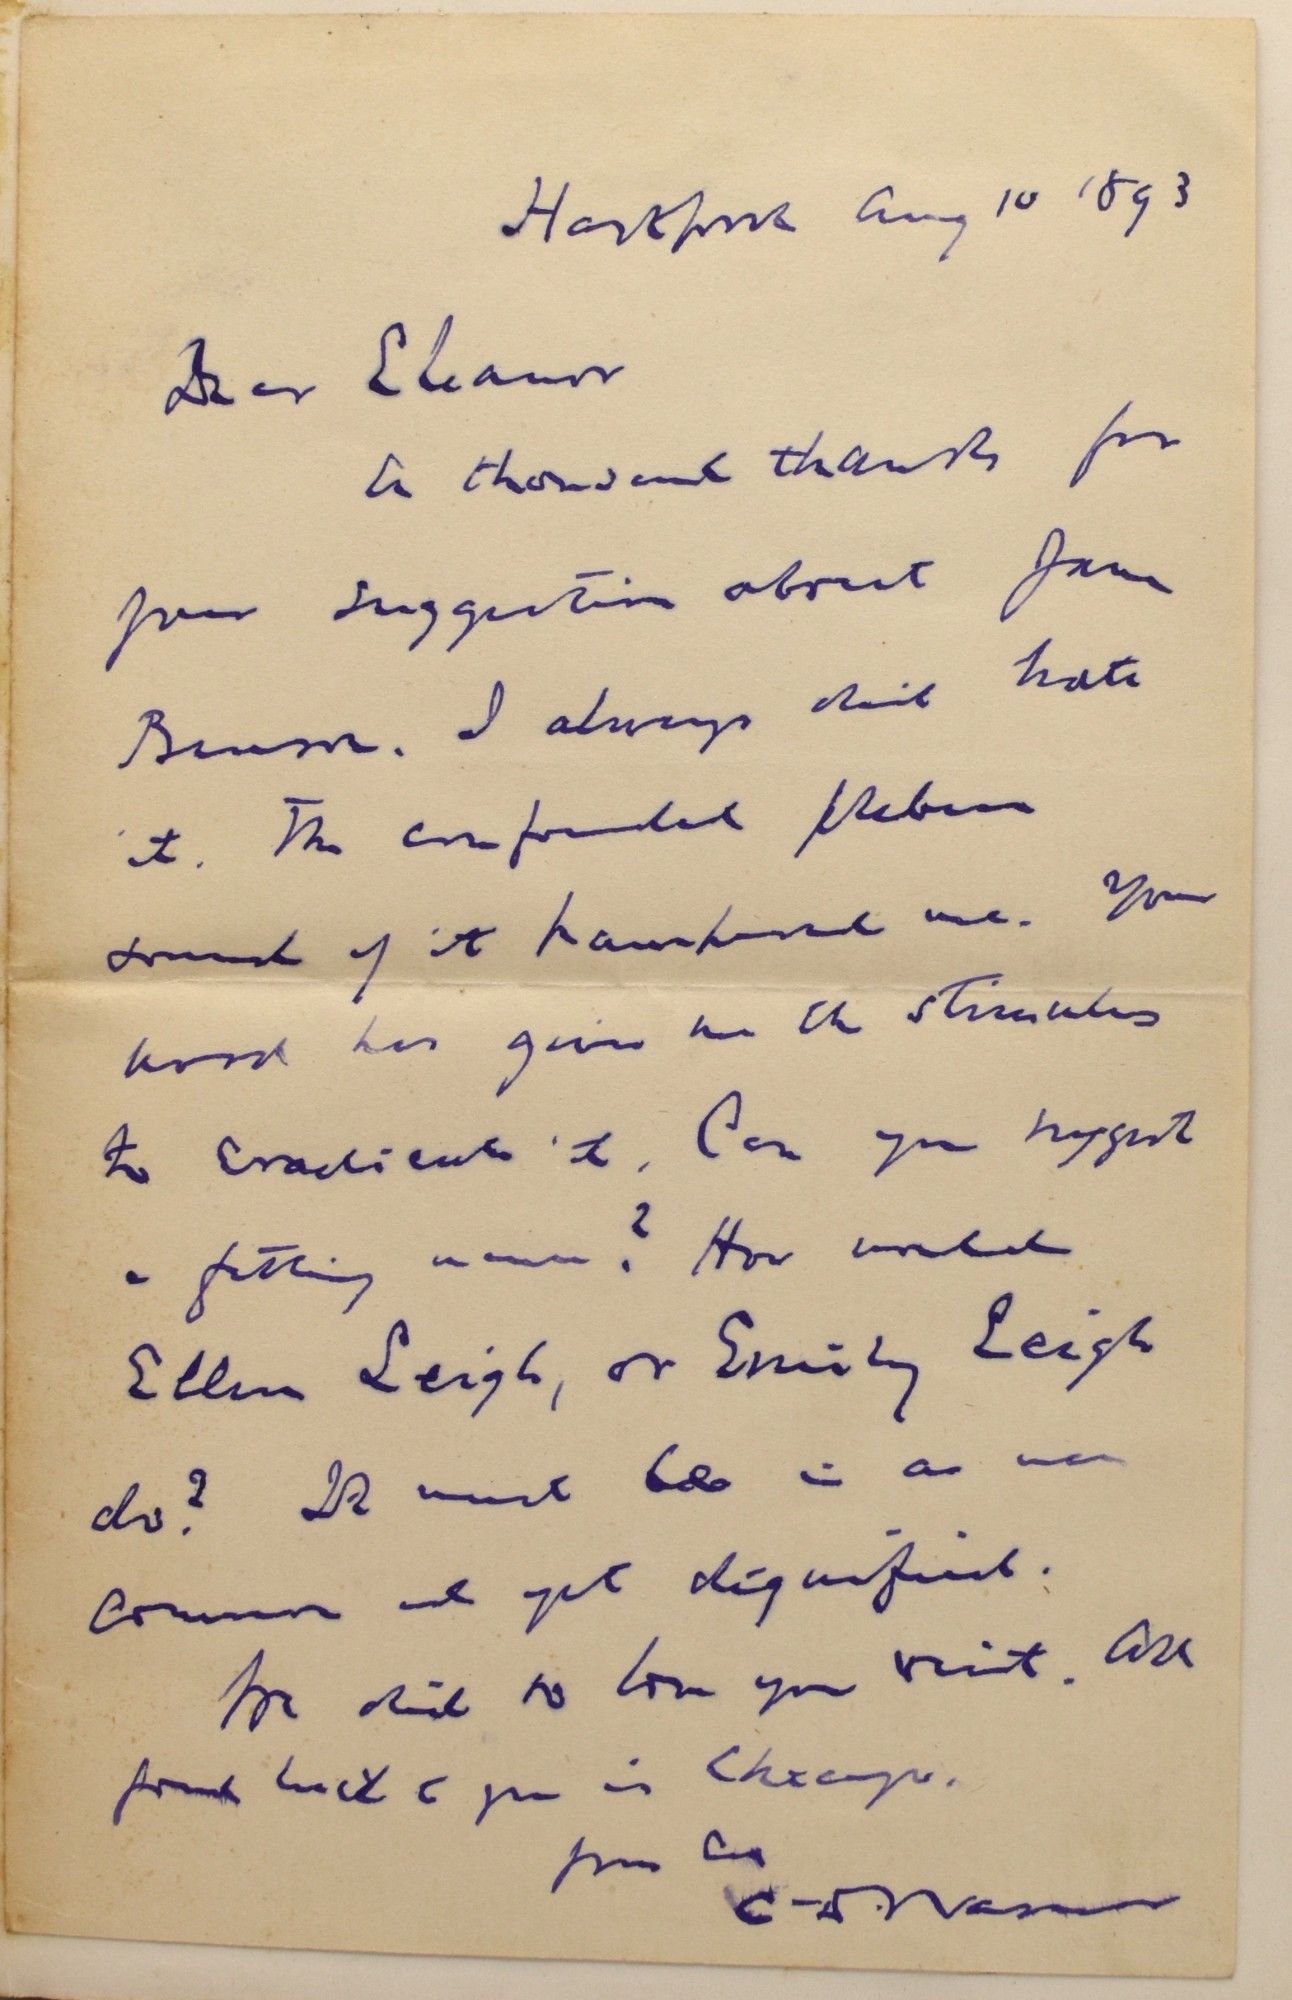 Hartford Aug 10 1893
Dear Eleanor
A thousand thanks for
your suggestion about Jane
Benson. I always did hate
it. The confounded plebean
sound of it hampered me. Your
word has given me the stimulus
to eradicate it. Can you suggest
a fitting name? How would
Ellen Leigh, or Emily Leigh
do? It must be
common and yet dignified.
We did so love your visit. All
good luck to you in Chicago.
Yours
C. D. Warner